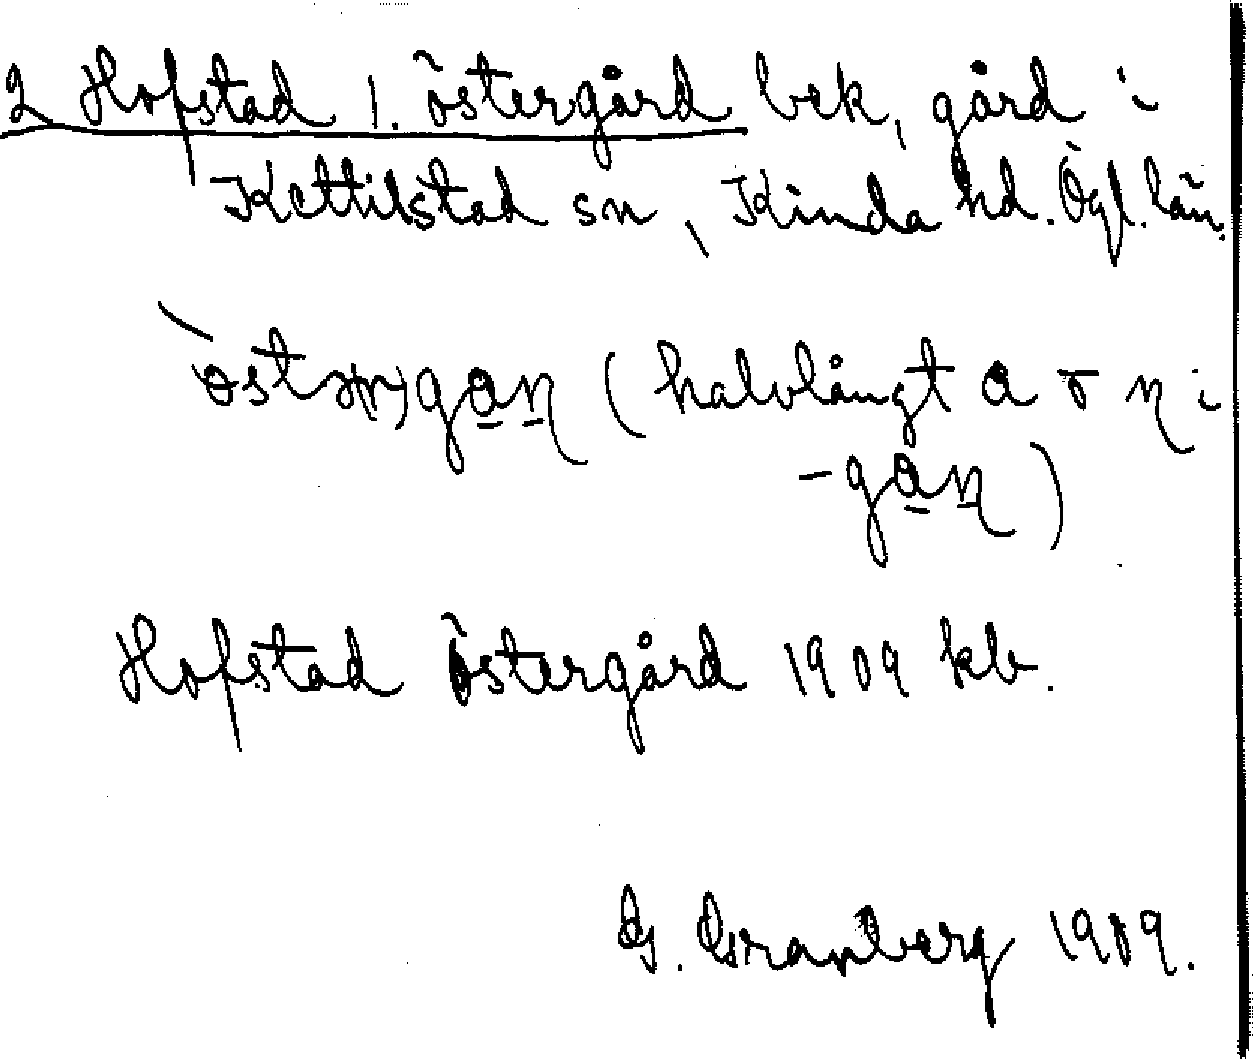 2 Hofstad l. östergård bek, gård i
Kettilstad sn, Kinda hd. Ögl. län.
östə(r)gɑṉ (halvlångt ɑ o ṉ i
-gɑṉ)
Hofstad Östergård 1909 kb.
G. Granberg 1909.